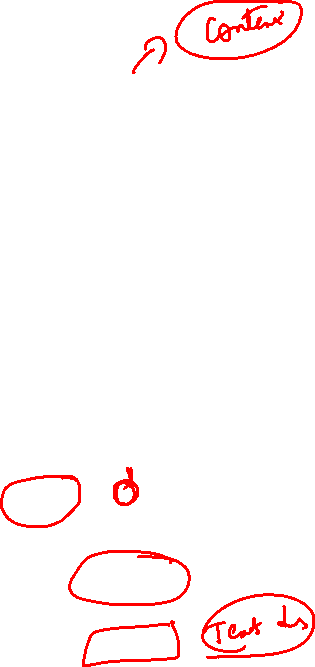 Context
Text ds